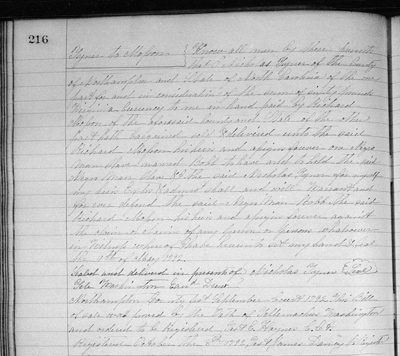 216
Tyner to Mason
Know all men by these presents
that I Nicholas Tyner of the County
of Northampton and State of North Carolina of the one
part for and in consideration of the sum of sixty pounds
Virginia Currency to me in hand paid by Richard
Mason of the aforesaid County and State of the other
part hath bargained sold & delivered unto the said
Richard Mason his heirs and assigns forever one Negro
man slave named to have and to hold the said
Negro man I the said Nicholas Tyner for myself
my heirs shall and will Warrant and
forever defend the said Negro man the said
Richard Mason his heirs and assigns forever against
the claim or claims of any person or persons whatsoever
In Witness whereof I have hereunto set my hand & seal
the of May 1792
Sealed and delivered in presence of Nicholas Tyner Seal
Northampton County September Court 1792 This Bill
of sale was proved by the Oath of Washington
and ordered to be Registered
Registered October 1792